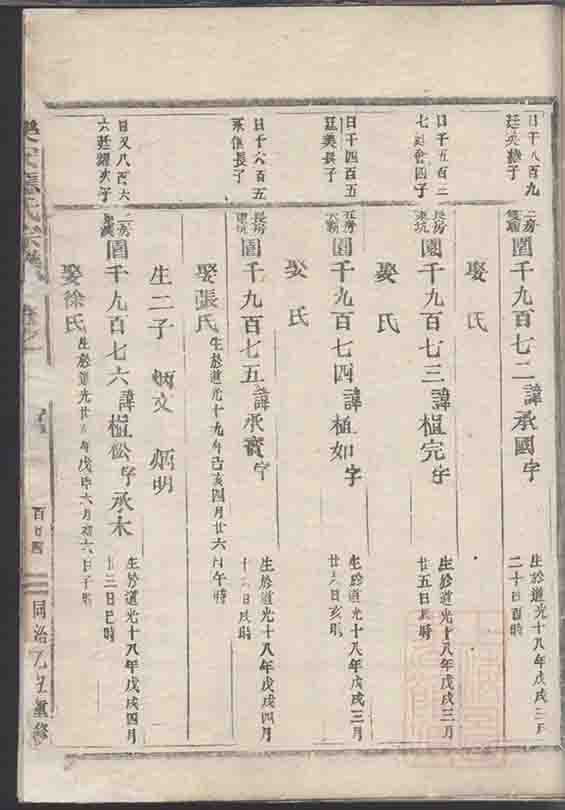 日千八百九
廷
子
二房
圍千九百七二諱承國字
生於道光十八年戊戌三月
二十日酉時
娶氏
日千五百二
七
四子
長房
東坑
圍千九百七三諱植完字
生於道光十八年戊戌三月
廿五日辰時
娶氏
日千四百五
廷美長子
圍千九百七四諱植如字
生於道光十八年戊戌三月
廿六日亥時
娶氏
日千六百五
承恒長子
長房
東坑
圍千九百七五諱承寳字
生於道光十八年戊戌四月
十六日辰時
娶張氏
生於道光十九年己亥四月廿六日午時
生二子 炳文 炳明
日又八百六
六廷耀次子
二房
圍千九百七六諱植松字承木
生於道光十八年戊戌四月
廿三日巳時
娶徐氏
生於道光廿八年戊申六月初六日子時
氏宗譜
百廿四
同治乙丑重修